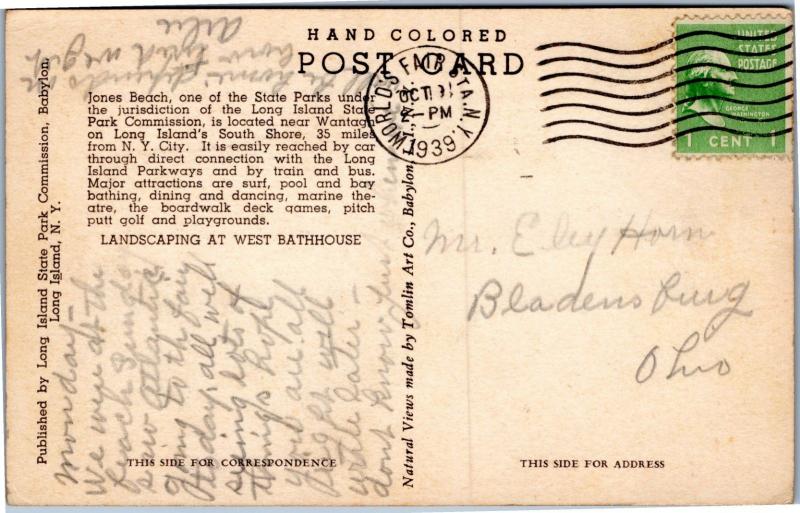 HAND COLORED
POST CARD
Jones Beach, one of the State Parks under
the jurisdiction of the Long Island State
Park Commission, is located near Wantagh
on Long Island's South Shore, 35 miles
from N. Y. City. It is easily reached by car
through direct connection with the Long
Island Parkways and by train and bus.
Major attractions are surf, pool and bay
bathing, dining and dancing, marine the-
atre, the boardwalk deck games, pitch
putt golf and playgrounds.
LANDSCAPING AT WEST BATHHOUSE
Published by Long Island State Park Commission, Babylon,
Long Island, N. Y.
Natural Views made by Tomlin Art Co., Babylon, L. I., N. Y.
WORLD'S FAIR STA. N.Y.
OCT
2 - PM
1939
UNITED
STATES
POSTAGE
GEORGE
WASHINGTON
1 CENT 1
Monday -
We were at the
beach Sunday
saw Atlantic
going to the fair
today all well
seeing lots of
things hope
you are all
well
write later -
dont know just when
Mr. Eley Horn
Bladensburg
Ohio
THIS SIDE FOR CORRESPONDENCE
THIS SIDE FOR ADDRESS